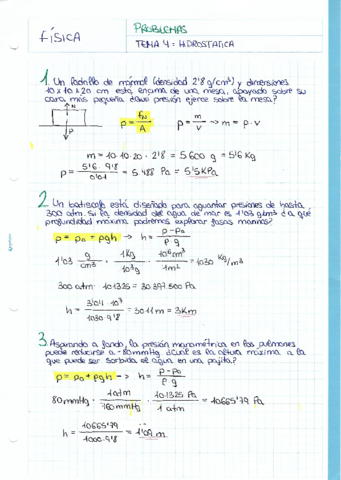 FÍSICA
PROBLEMAS
TEMA 4: HIDROSTATICA
1. Un ladrillo de mármol (densidad 2'8 g/cm³) y dimensiones
10 x 10 x 20 cm está encima de una mesa, apoyado sobre su
cara más pequeña ¿Qué presión ejerce sobre la mesa?
N
P
p = FN/A
p = m/v → m = p · v
m = 10 · 10 · 20 · 2'8 = 5600 g = 5'6 Kg
p = 5'6 · 9'8 / 0'01 = 5488 Pa = 5'5 KPa
2. Un batiscafo está diseñado para aguantar presiones de hasta
300 atm. Si la densidad del agua de mar es 1'03 g/cm³ ¿a qué
profundidad máxima podremos explorar fosas marinas?
p = p₀ + ρgh → h = p - p₀ / ρ g
1'03 g/cm³ · 1Kg/10³g · 10⁶cm³/1m³ = 1030 Kg/m³
300 atm · 101325 = 30 397 500 Pa
h = 3'04 · 10⁷ / 1030 · 9'8 = 3011 m = 3Km
3. Aspirando a fondo, la presión manométrica en los pulmones
puede reducirse a -80 mmHg ¿Cuál es la altura máxima a la
que puede ser sorbida el agua en una pajita?
p = p₀ + ρgh → h = p - p₀ / ρ g
80 mmHg · 1 atm / 760 mmHg · 101325 Pa / 1 atm = 10665'79 Pa
h = 10665'79 / 1000 · 9'8 = 1'09 m